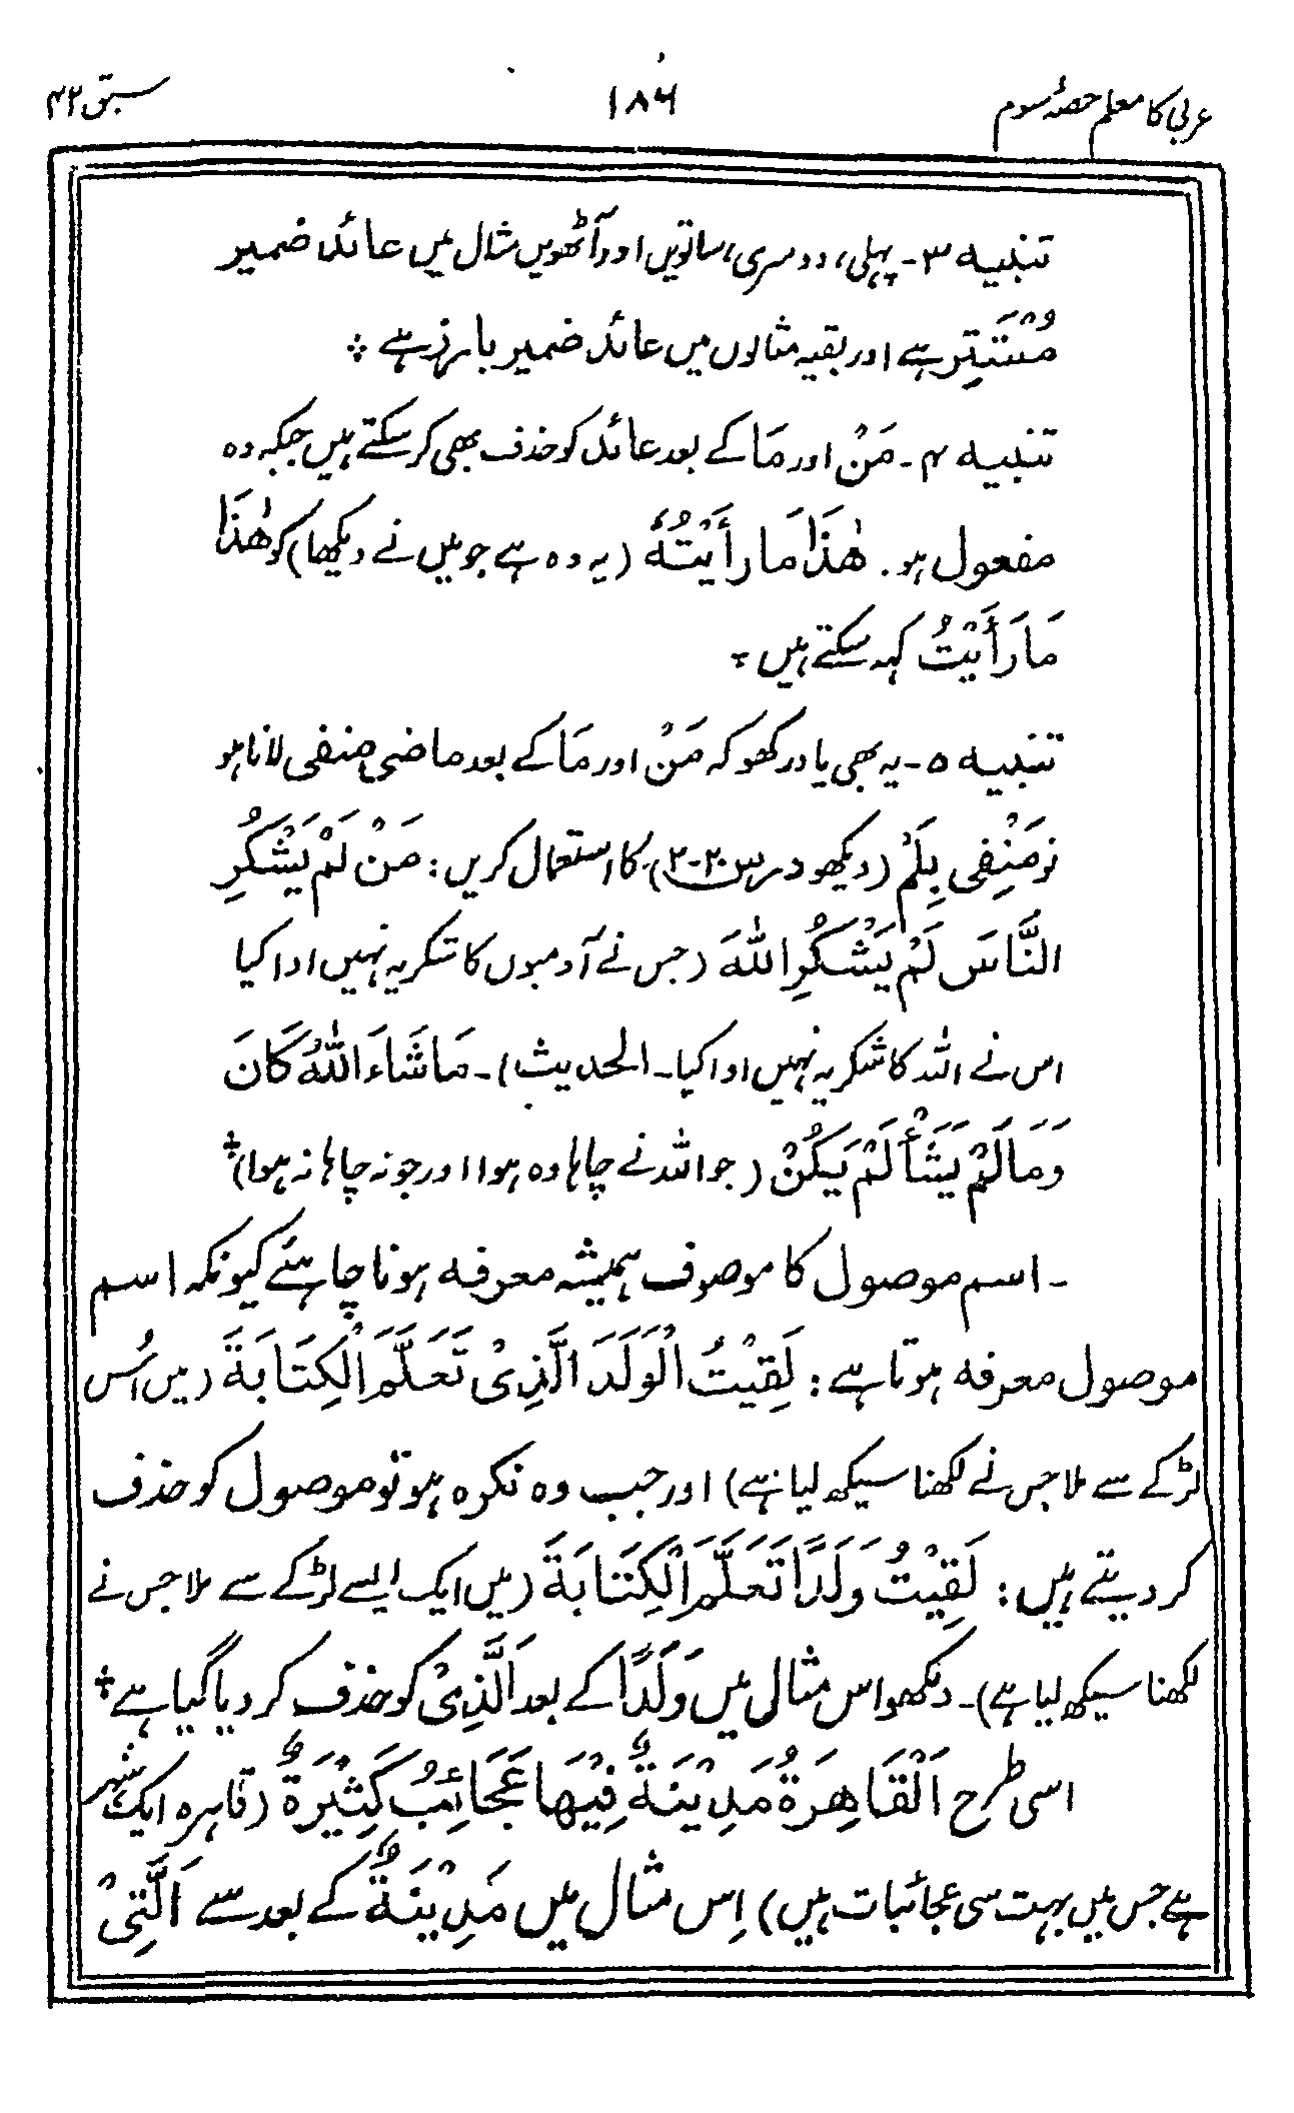 عربی کا معلم حصۂ سوم ۱۸۶ سبق ۴۲
تنبیہ ۳ - پہلی، دوسری، ساتویں اور آٹھویں مثال میں عائد ضمیر
مُسْتَتِر ہے اور بقیہ مثالوں میں عائد ضمیر بارز ہے ⁘
تنبیہ ۴ - مَنْ اور مَا کے بعد عائد کو حذف بھی کر سکتے ہیں جبکہ وہ
مفعول ہو. هٰذَا مَا رأَيْتُهٗ (یہ وہ ہے جو میں نے دیکھا) کو هٰذَا
مَا رَأَيْتُ کہہ سکتے ہیں ⁘
تنبیہ ۵ - یہ بھی یاد رکھو کہ مَنْ اور مَا کے بعد ماضی منفی لانا ہو
تو مَنْفِی بِلَمْ (دیکھو درس ۲۰-۲) کا استعمال کریں: مَنْ لَمْ يَشْكُرِ
النَّاسَ لَمْ يَشْكُرِ اللّٰهَ (جس نے آدمیوں کا شکریہ نہیں ادا کیا
اس نے اللہ کا شکریہ نہیں ادا کیا۔ الحدیث) - مَا شَاءَ اللّٰهُ كَانَ
وَمَا لَمْ يَشَأْ لَمْ يَكُنْ (جو اللہ نے چاہا وہ ہوا اور جو نہ چاہا نہ ہوا) ⁘
- اسم موصول کا موصوف ہمیشہ معرفہ ہونا چاہئے کیونکہ اسم
موصول معرفہ ہوتا ہے: لَقِيْتُ الْوَلَدَ الَّذِىْ تَعَلَّمَ الْكِتَابَةَ (میں اُس
لڑکے سے ملا جس نے لکھنا سیکھ لیا ہے) اور جب وہ نکرہ ہو تو موصول کو حذف
کر دیتے ہیں: لَقِيْتُ وَلَدًا تَعَلَّمَ الْكِتَابَةَ (میں ایک ایسے لڑکے سے ملا جس نے
لکھنا سیکھ لیا ہے) - دیکھو اس مثال میں وَلَدًا کے بعد اَلَّذِىْ کو حذف کر دیا گیا ہے ⁘
اسی طرح اَلْقَاهِرَةُ مَدِيْنَةٌ فِيْهَا عَجَائِبُ كَثِيْرَةٌ (قاہرہ ایک شہر
ہے جس میں بہت سی عجائبات ہیں) اِس مثال میں مَدِيْنَةٌ کے بعد سے اَلَّتِىْ